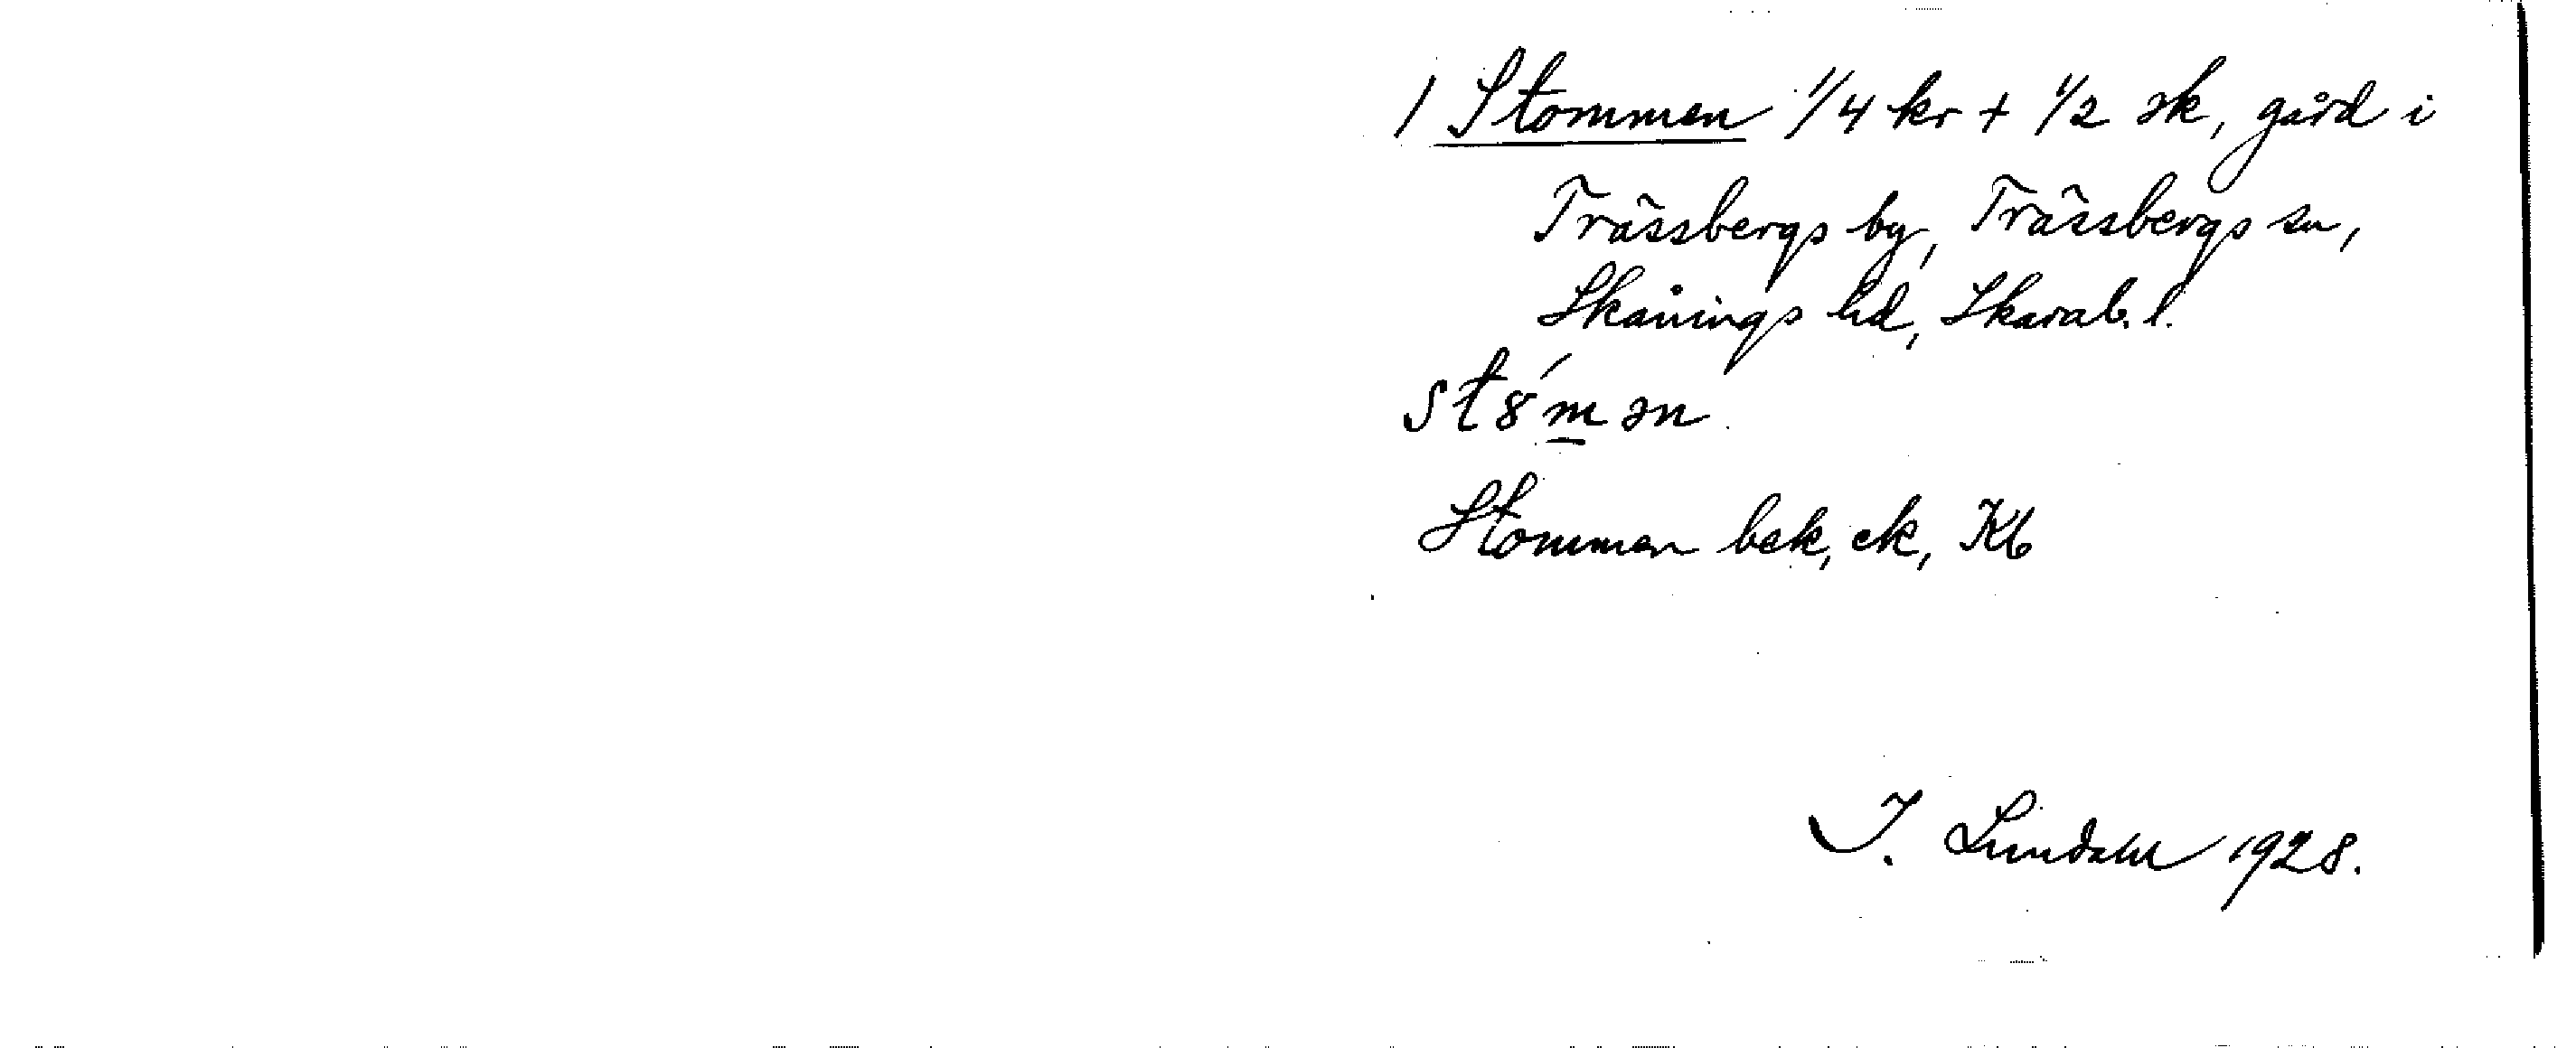 1 Stommen 1/4 kr + 1/2 sk, gård i
Trässbergs by, Trässbergs sn,
Skånings hd, Skarab. l.
st8́mən
Stommen bek, ek, Kb
I. Lundahl 1928.